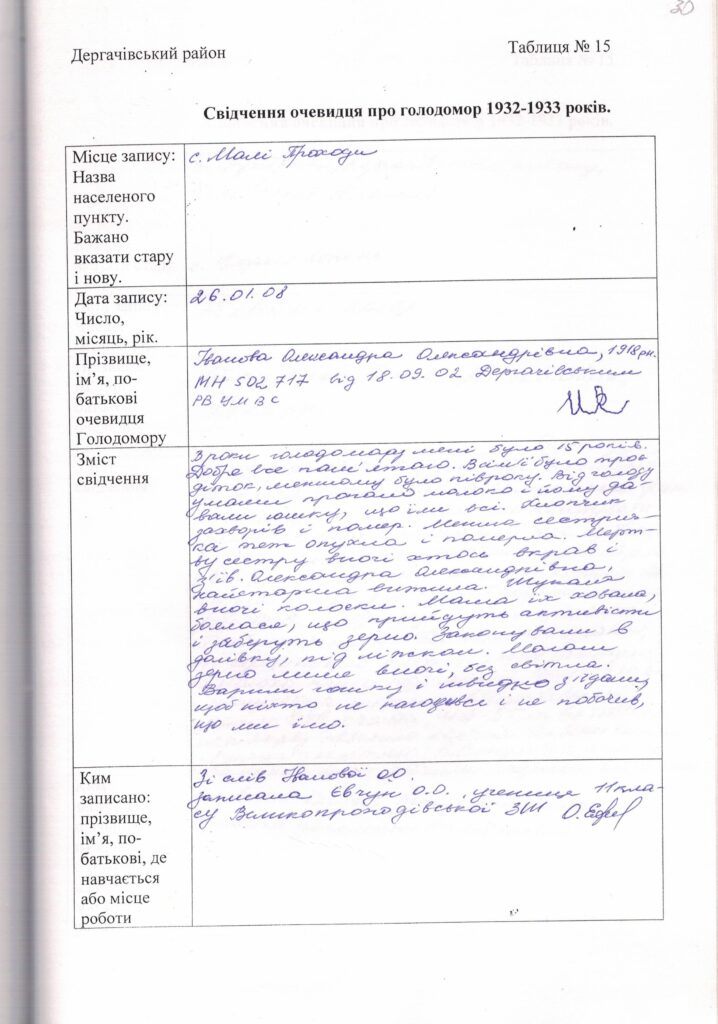 30
Дергачівський район
Таблиця № 15
Свідчення очевидця про голодомор 1932-1933 років.
Місце запису:
Назва
населеного
пункту.
Бажано
вказати стару
і нову.
с. Малі Проходи
Дата запису:
Число,
місяць, рік.
26.01.08
Прізвище,
ім’я, по-
батькові
очевидця
Голодомору
Іванова Олександра Олександрівна, 1918 рн.
МН 502717 від 18.09.02 Дергачівським
РВ УМВС
Зміст
свідчення
В роки голодомару мені було 15 років.
Добре все пам'ятаю. В сім'ї було троє
діток, меншому було півроку. Від голоду
у мами пропало молоко і йому да-
вали юшку, що їли всі. Хлопчик
захворів і помер. Менша сестрич-
ка теж опухла і померла. Мерт-
ву сестру вночі хтось вкрав і
з'їв. Олександра Олександрівна,
найстарша вижила. Шукала
вночі колоски. Мама їх ховала,
боялася, що прийдуть активісти
і заберуть зерно. Закопували в
долівку, під ліжком. Мололи
зерно лише вночі, без світла.
Варили юшку і швидко з'їдали,
щоб ніхто не нагодився і не побачив,
що ми їмо.
Ким
записано:
прізвище,
ім’я, по-
батькові, де
навчається
або місце
роботи
Зі слів Іванової О.О.
записала Євчун О.О., учениця 11 кла-
су Великопроходівської ЗШ